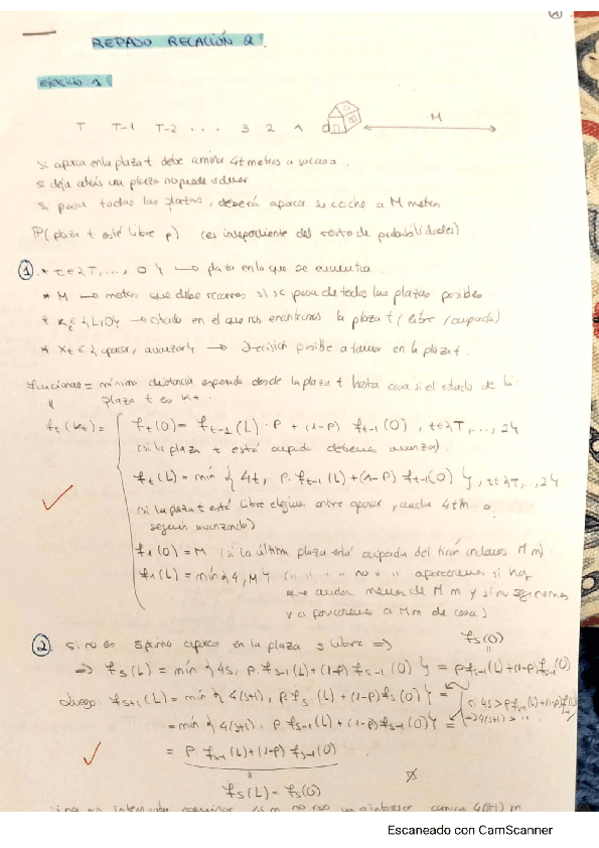 REPASO RELACIÓN 2.
EJERCICIO 1
T T-1 T-2 ... 3 2 1 M
Si aparca en la plaza t debe caminar 4t metros a su casa.
Si deja atrás una plaza no puede volver
Si pasa todas las plazas, deberá aparcar su coche a M metros
P(plaza t esté libre p) (es independiente del resto de probabilidades)
1 * t∈{T,..., 0} → plaza en la que se encuentra
* M → metros que debe recorrer si se pasa de todas las plazas posibles.
* Kt∈{L,O} → estado en el que nos encontramos la plaza t (libre/ocupada)
* Xt∈{aparcar, avanzar} → Decisión posible a tomar en la plaza t.
funciones = mínima distancia esperada desde la plaza t hasta casa si el estado de la
plaza t es Kt
ft(Kt) = ft(O) = ft-1(L)·p + (1-p) ft-1(O), t∈{T,...,2}
(si la plaza t está ocupada debemos avanzar).
ft(L) = min {4t, p·ft-1(L)+(1-p) ft-1(O)}, t∈{T,...,2}
(si la plaza t está libre elegimos entre aparcar, andar 4tm o
seguir avanzando)
f1(O) = M (si la última plaza está ocupada M m)
f1(L) = min{4,M} (" " " " no " " aparcaremos si hay
que andar menos de M m y si no seguiremos
y aparcaremos a M m de casa)
2. Si no es óptimo aparcar en la plaza s libre ⇒ fs(O)
⇒ fs(L) = min {4s, p·fs-1(L)+(1-p) fs-1(O)} = pfs-1(L)+(1-p)fs-1(O)
Luego fs+1(L) = min {4(s+1), p fs(L) + (1-p)fs(O)} =
si 4s > pfs-1(L)+(1-p)fs-1(O)
⇒ 4(s+1) > "
= min{4(s+1), p·fs-1(L) + (1-p) fs-1(O)} =
= p·fs-1(L)+(1-p) fs-1(O)
fs(L) = fs(O)
Escaneado con CamScanner